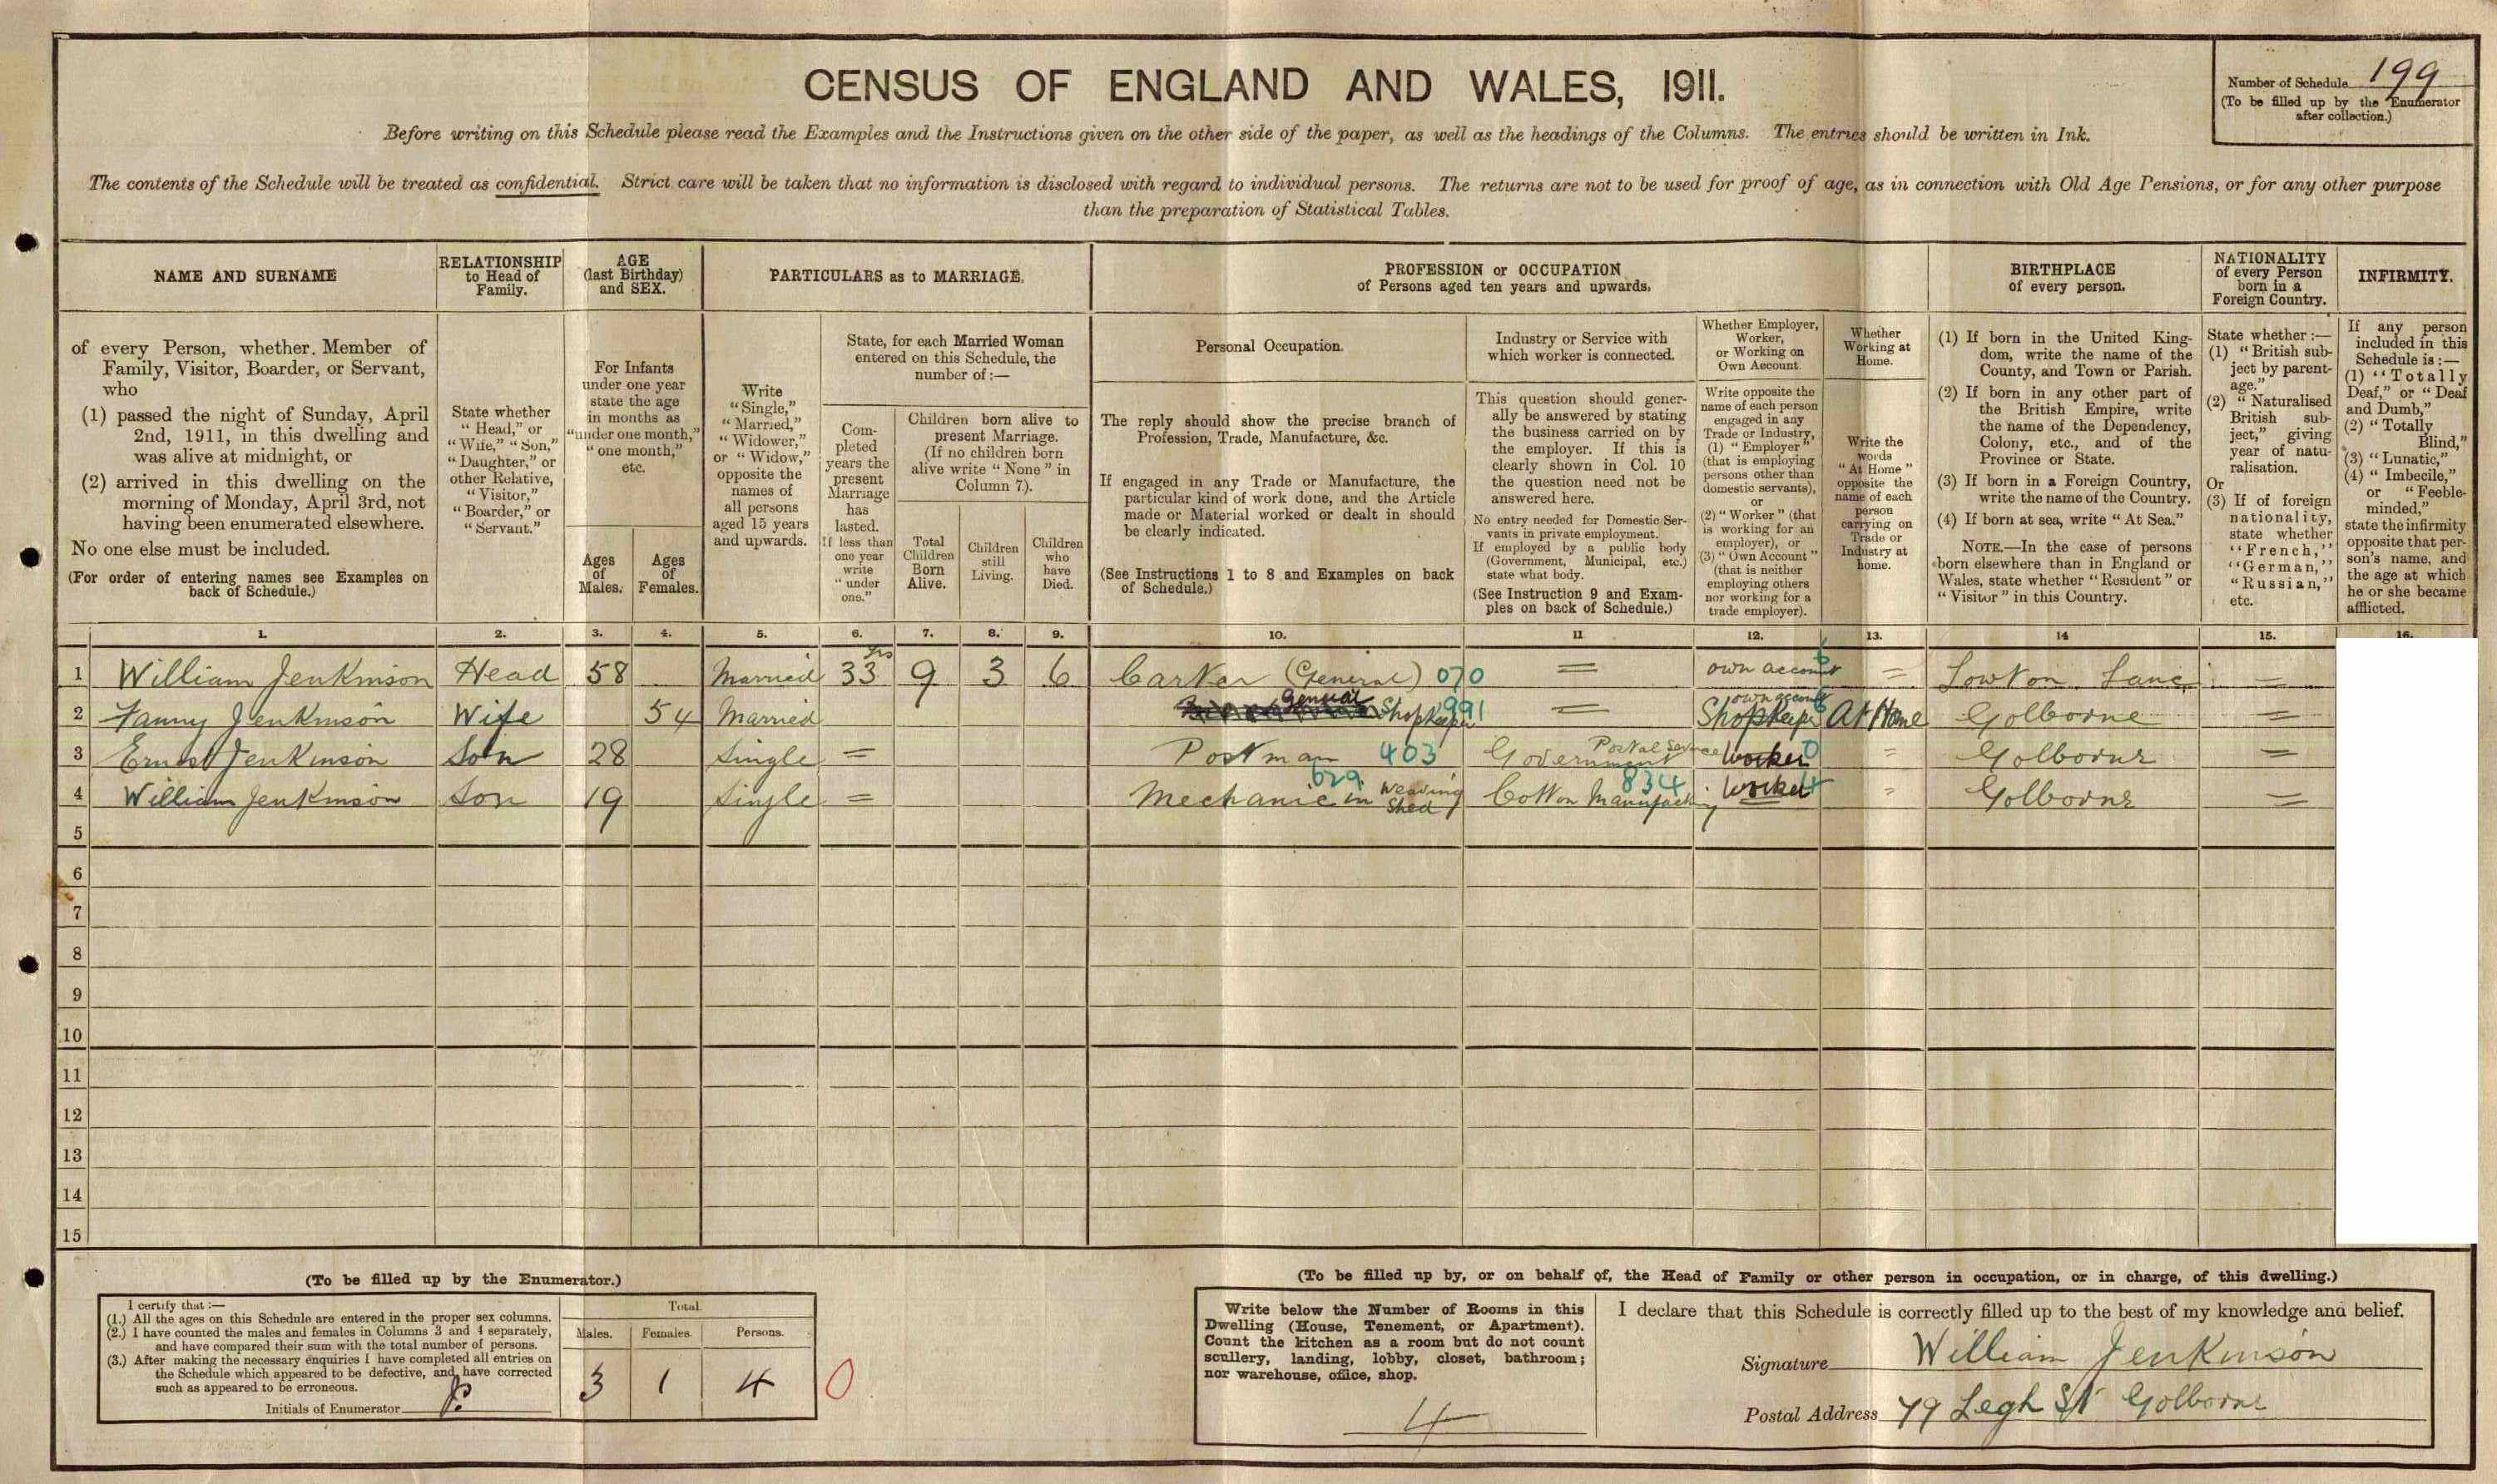 CENSUS OF ENGLAND AND WALES, 1911.
Number of Schedule 199
(To be filled up by the Enumerator
after collection.)
Before writing on this Schedule please read the Examples and the Instructions given on the other side of the paper, as well as the headings of the Columns. The entries should be written in Ink.
The contents of the Schedule will be treated as confidential. Strict care will be taken that no information is disclosed with regard to individual persons. The returns are not to be used for proof of age, as in connection with Old Age Pensions, or for any other purpose
than the preparation of Statistical Tables.
NAME AND SURNAME
RELATIONSHIP
to Head of
Family.
AGE
(last Birthday)
and SEX.
PARTICULARS as to MARRIAGE.
PROFESSION or OCCUPATION
of Persons aged ten years and upwards.
BIRTHPLACE
of every person.
NATIONALITY
of every Person
born in a
Foreign Country.
INFIRMITY.
of every Person, whether Member of
Family, Visitor, Boarder, or Servant,
who
(1) passed the night of Sunday, April
2nd, 1911, in this dwelling and
was alive at midnight, or
(2) arrived in this dwelling on the
morning of Monday, April 3rd, not
having been enumerated elsewhere.
No one else must be included.
(For order of entering names see Examples on
back of Schedule.)
State whether
"Head," or
"Wife," "Son,"
"Daughter," or
other Relative,
"Visitor,"
"Boarder," or
"Servant."
For Infants
under one year
state the age
in months as
"under one month,"
"one month,"
etc.
Ages
of
Males.
Ages
of
Females.
Write
"Single,"
"Married,"
"Widower,"
or "Widow,"
opposite the
names of
all persons
aged 15 years
and upwards.
State, for each Married Woman
entered on this Schedule, the
number of:—
Com-
pleted
years the
present
Marriage
has
lasted.
If less than
one year
write
"under
one."
Children born alive to
present Marriage.
(If no children born
alive write "None" in
Column 7).
Total
Children
Born
Alive.
Children
still
Living.
Children
who
have
Died.
Personal Occupation.
The reply should show the precise branch of
Profession, Trade, Manufacture, &c.
If engaged in any Trade or Manufacture, the
particular kind of work done, and the Article
made or Material worked or dealt in should
be clearly indicated.
(See Instructions 1 to 8 and Examples on back
of Schedule.)
Industry or Service with
which worker is connected.
This question should gener-
ally be answered by stating
the business carried on by
the employer. If this is
clearly shown in Col. 10
the question need not be
answered here.
No entry needed for Domestic Ser-
vants in private employment.
If employed by a public body
(Government, Municipal, etc.)
state what body.
(See Instruction 9 and Exam-
ples on back of Schedule.)
Whether Employer,
Worker,
or Working on
Own Account.
Write opposite the
name of each person
engaged in any
Trade or Industry,
(1) "Employer"
(that is employing
persons other than
domestic servants),
or
(2) "Worker" (that
is working for an
employer), or
(3) "Own Account"
(that is neither
employing others
nor working for a
trade employer).
Whether
Working at
Home.
Write the
words
"At Home"
opposite the
name of each
person
carrying on
Trade or
Industry at
home.
(1) If born in the United King-
dom, write the name of the
County, and Town or Parish.
(2) If born in any other part of
the British Empire, write
the name of the Dependency,
Colony, etc., and of the
Province or State.
(3) If born in a Foreign Country,
write the name of the Country.
(4) If born at sea, write "At Sea."
NOTE.—In the case of persons
born elsewhere than in England or
Wales, state whether "Resident" or
"Visitor" in this Country.
State whether:—
(1) "British sub-
ject by parent-
age."
(2) "Naturalised
British sub-
ject," giving
year of natu-
ralisation.
Or
(3) If of foreign
nationality,
state whether
"French,"
"German,"
"Russian,"
etc.
If any person
included in this
Schedule is:—
(1) "Totally
Deaf," or "Deaf
and Dumb,"
(2) "Totally
Blind,"
(3) "Lunatic,"
(4) "Imbecile,"
or "Feeble-
minded,"
state the infirmity
opposite that per-
son's name, and
the age at which
he or she became
afflicted.
1. 2. 3. 4. 5. 6. 7. 8. 9. 10. 11 12. 13. 14 15. 16.
1 William Jenkinson Head 58 Married 33 yrs 9 3 6 Carter (General) 070 = own account = Lowton Lane =
2 Fanny Jenkinson Wife 54 Married General Shopkeeper 991 = own account Shopkeeper At Home Golborne =
3 Ernest Jenkinson Son 28 Single = Postman 403 Government Postal Service Worker 0 = Golborne =
4 William Jenkinson Son 19 Single = Mechanic in Weaving Shed 629 Cotton Manufacturing 834 Worker = Golborne =
5
6
7
8
9
10
11
12
13
14
15
(To be filled up by the Enumerator.)
I certify that:—
(1.) All the ages on this Schedule are entered in the proper sex columns.
(2.) I have counted the males and females in Columns 3 and 4 separately,
and have compared their sum with the total number of persons.
(3.) After making the necessary enquiries I have completed all entries on
the Schedule which appeared to be defective, and have corrected
such as appeared to be erroneous.
Initials of Enumerator
Total.
Males. Females. Persons.
3 1 4 0
(To be filled up by, or on behalf of, the Head of Family or other person in occupation, or in charge, of this dwelling.)
Write below the Number of Rooms in this
Dwelling (House, Tenement, or Apartment).
Count the kitchen as a room but do not count
scullery, landing, lobby, closet, bathroom;
nor warehouse, office, shop.
4
I declare that this Schedule is correctly filled up to the best of my knowledge and belief.
Signature William Jenkinson
Postal Address 79 Legh St Golborne